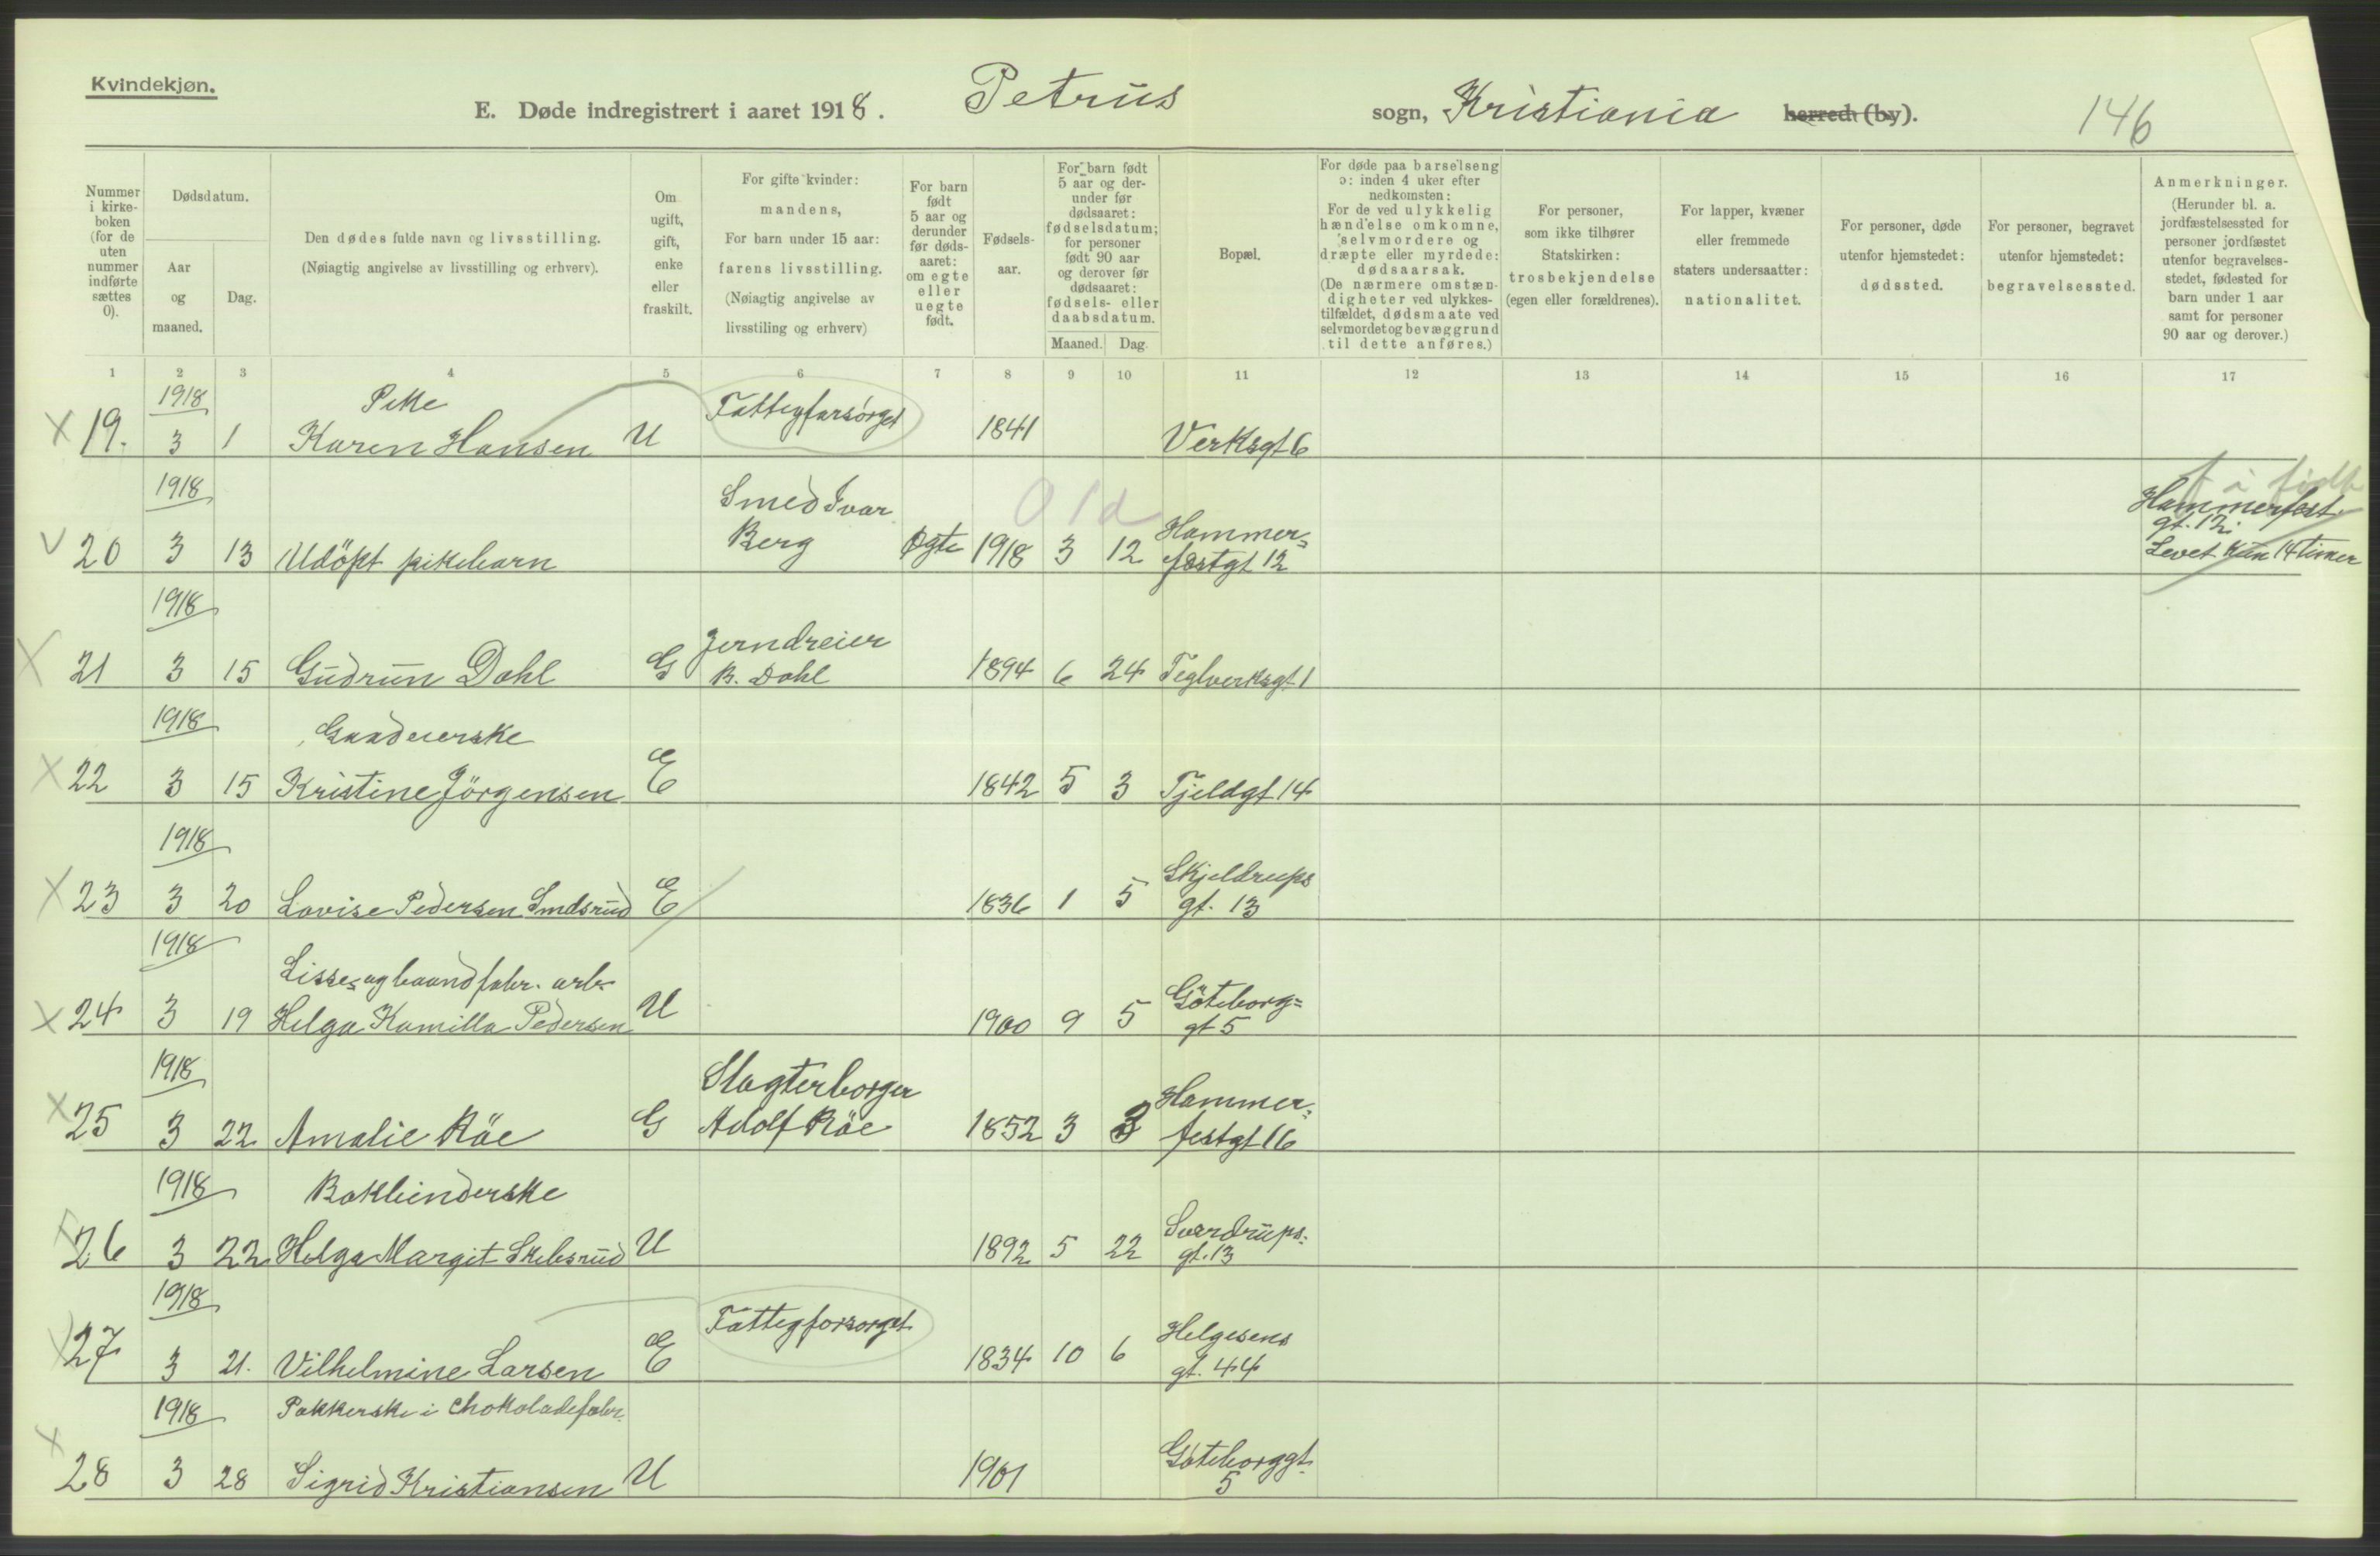 Kvindekjøn.
E. Døde indregistrert i aaret 1918. Petrus sogn, Kristiania herred (by). 146
Nummer i kirkeboken (for de uten nummer indførte sættes 0).
Dødsdatum.
Aar og maaned.
Dag.
Den dødes fulde navn og livsstilling.
(Nøiagtig angivelse av livsstilling og erhverv).
Om ugift, gift, enke eller fraskilt.
For gifte kvinder: mandens,
For barn under 15 aar: farens livsstilling.
(Nøiagtig angivelse av livsstiling og erhverv)
For barn født 5 aar og derunder før dødsaaret: om egte eller uegte født.
Fødselsaar.
For barn født 5 aar og derunder før dødsaaret: fødselsdatum; for personer født 90 aar og derover før dødsaaret: fødsels- eller daabsdatum.
Maaned. Dag.
Bopæl.
For døde paa barselseng ɔ: inden 4 uker efter nedkomsten:
For de ved ulykkelig hændelse omkomne, selvmordere og dræpte eller myrdede: dødsaarsak.
(De nærmere omstændigheter ved ulykkestilfældet, dødsmaate ved selvmordet og bevæggrund til dette anføres.)
For personer, som ikke tilhører Statskirken: trosbekjendelse (egen eller forældrenes).
For lapper, kvæner eller fremmede staters undersaatter: nationalitet.
For personer, døde utenfor hjemstedet: dødssted.
For personer, begravet utenfor hjemstedet: begravelsessted.
Anmerkninger.
(Herunder bl. a. jordfæstelsessted for personer jordfæstet utenfor begravelsesstedet, fødested for barn under 1 aar samt for personer 90 aar og derover.)
1 2 3 4 5 6 7 8 9 10 11 12 13 14 15 16 17
1918 Pike Fattigforsørget
X 19. 3 1 Karen Hansen U 1841 Verksgt 6
1918 Smed Ivar 0 1d Hammer= Hammerfest. gt. 12.
V 20 3 13 Udöpt pikebarn Berg Ægte 1918 3 12 festgt 12 Levet kun 14 timer
1918 Jerndreier
X 21 3 15 Gudrun Dahl G B. Dahl 1894 6 24 Teglverksgt 1
1918 Gaardeierske
X 22 3 15 Kristine Jörgensen E 1842 5 3 Fjeldgt 14
1918 Skjeldrups
X 23 3 20 Lovise Pedersen Smdsrud E 1836 1 5 gt. 13
1918 Lisse= og baandfabr. arb. Göteborg=
X 24 3 19 Helga Kamilla Pedersen U 1900 9 5 gt 5
1918 Slagterborger Hammer=
X 25 3 22 Amalie Röe G Adolf Röe 1852 3 3 festgt 16
1918 Bokbinderske Sverdrups=
X 26 3 22 Helga Margit Skibsrud U 1892 5 22 gt. 13
1918 Fattigforsørget Helgesens
X 27 3 21. Vilhelmine Larsen E 1834 10 6 gt. 44
1918 Pakkerske i chokoladefabr. Göteborggt.
X 28 3 28 Sigrid Kristiansen U 1901 5